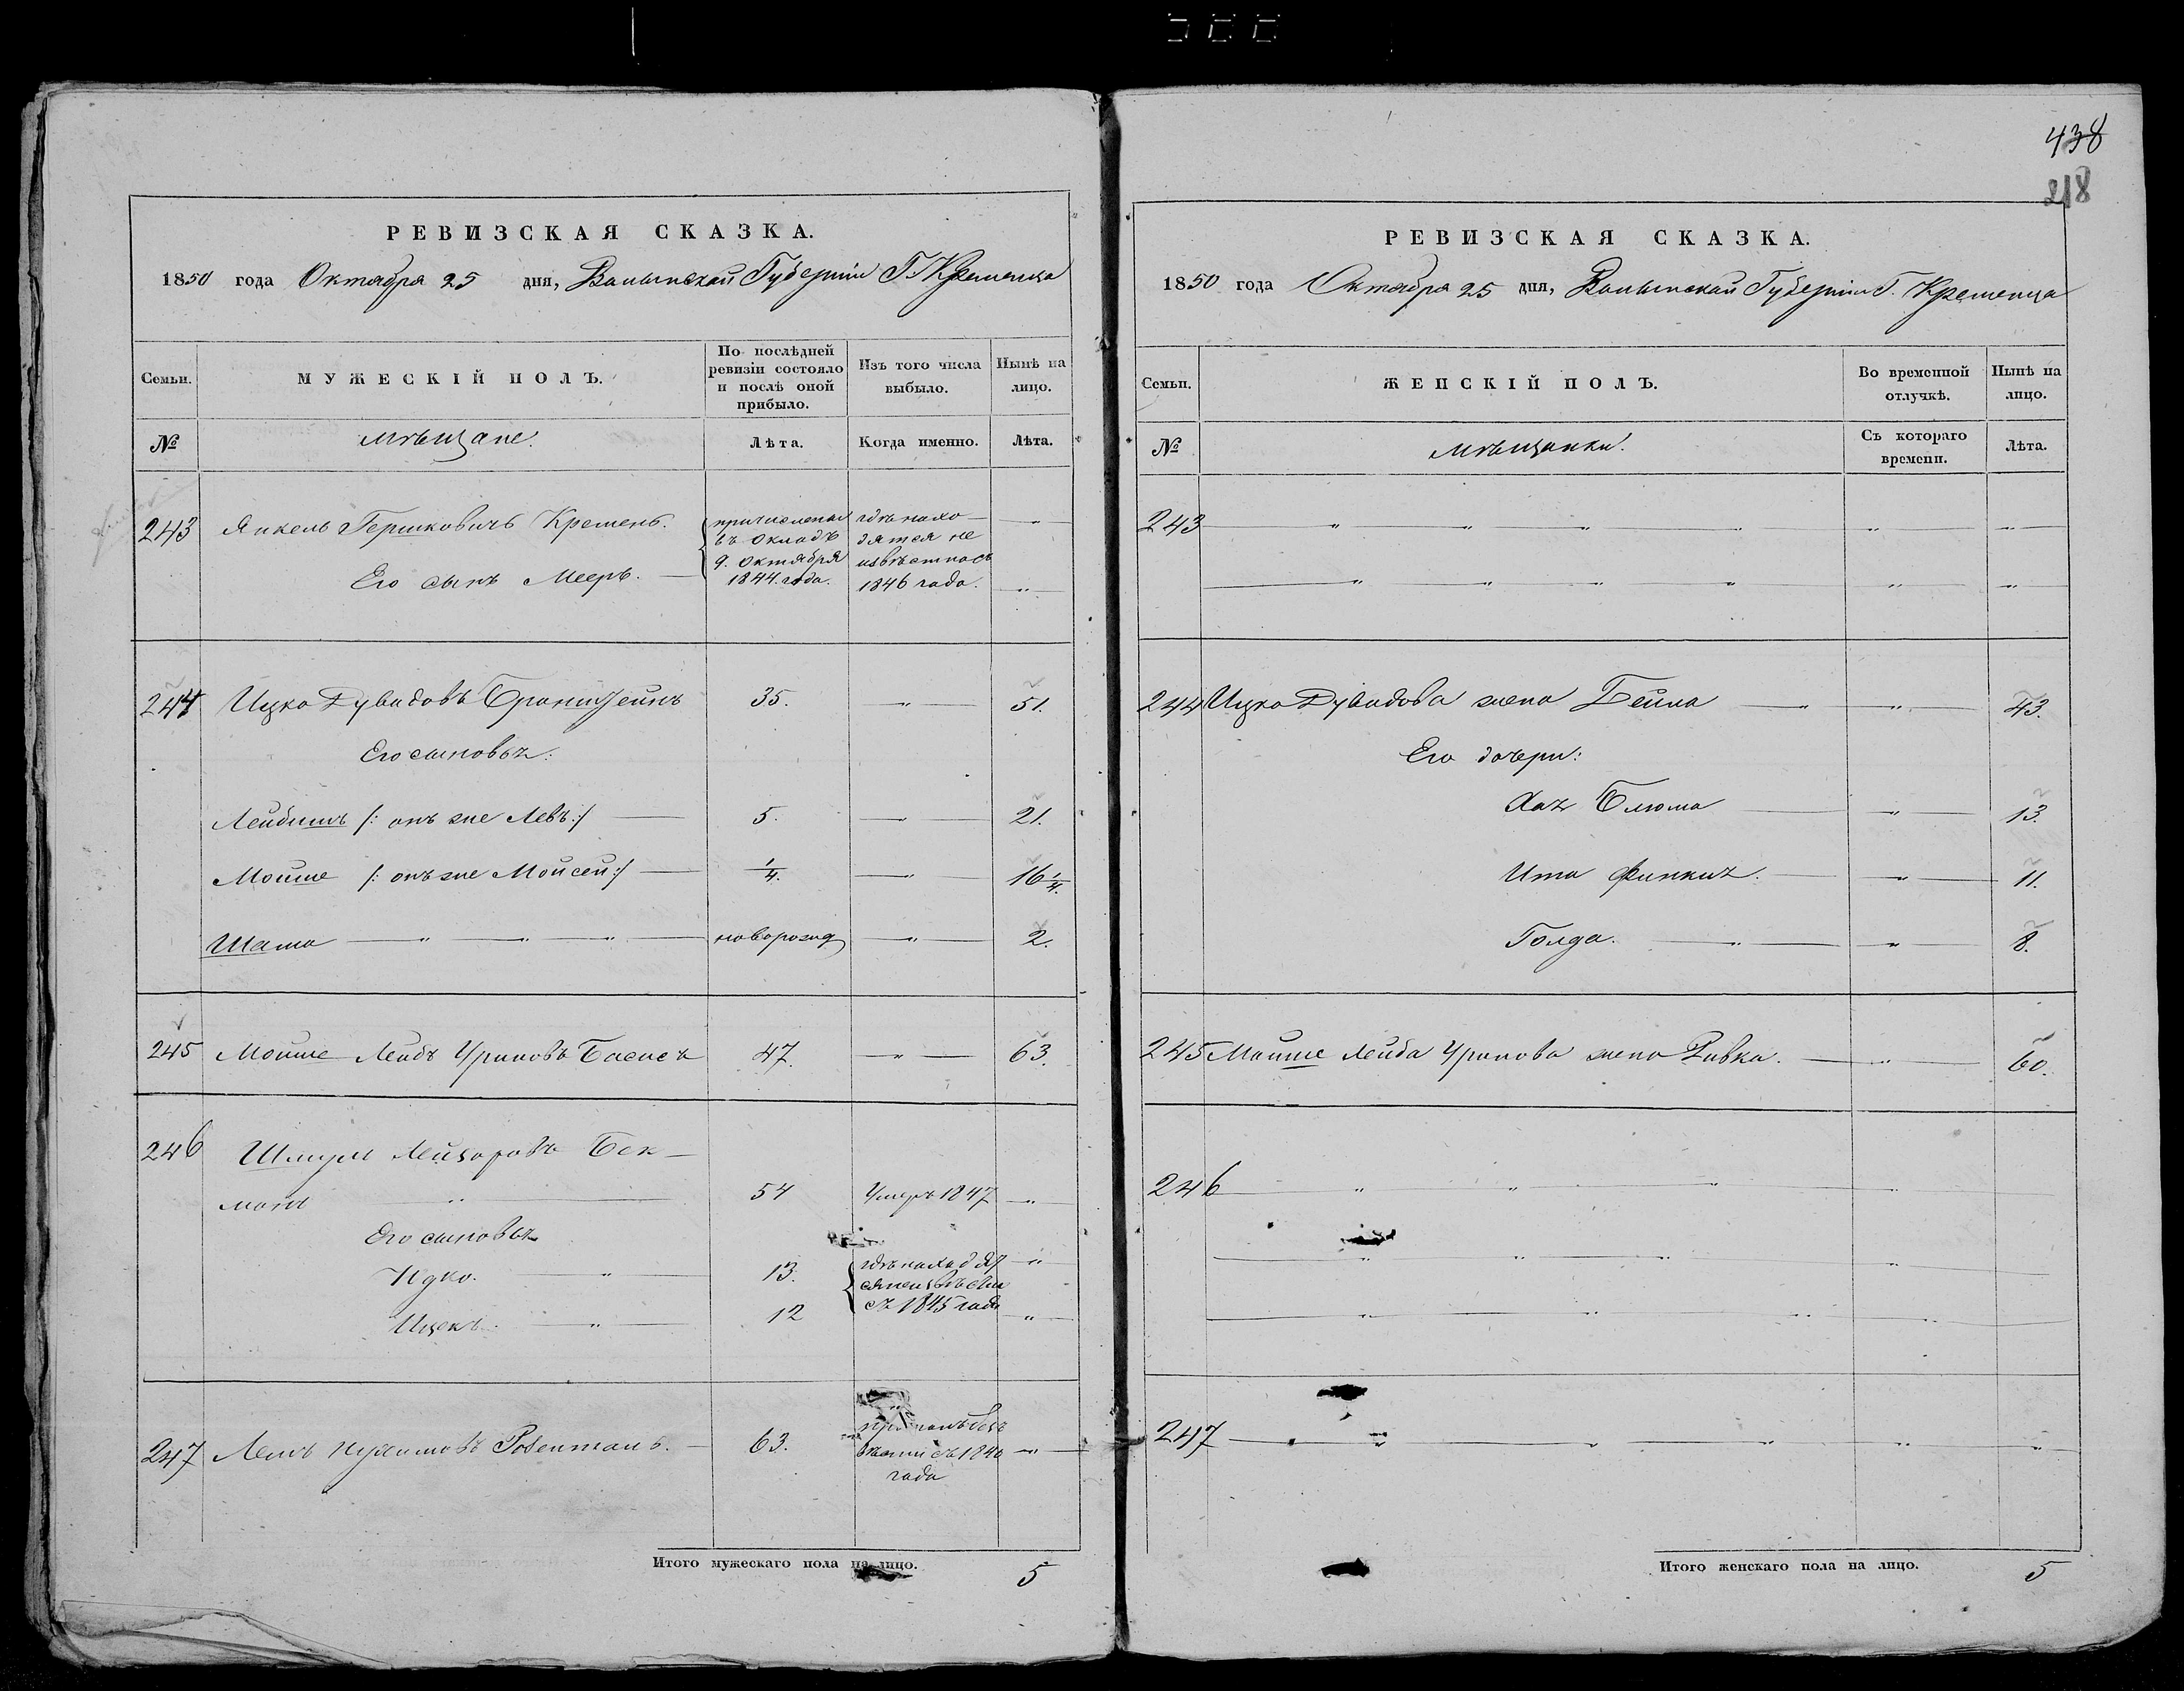 438
218
РЕВИЗСКАЯ СКАЗКА.
1850 года Октября 25 дня, Волынской Губерніи Г. Кременца
Семьи. МУЖЕСКІЙ ПОЛЪ. По послѣдней ревизіи состояло и послѣ оной прибыло. Изъ того числа выбыло. Нынѣ на лицо.
№ Мѣщане. Лѣта. Когда именно. Лѣта.
243 Янкель Гершковичъ Кремень.
Его сынъ Мееръ.
причислены
въ окладъ
9. октября
1844 года.
гдѣ нахо
дятся не
извѣстно съ
1846 года.
244 Ицко Дувидовъ 35. „ 51.
Его сыновья:
Лейбишъ /: онъ же Левъ :/ 5. „ 21.
Мошше /: онъ же Мойсей :/ 1/4. „ 16 1/4.
Шама „ „ „ новорожд „ 2.
245 Мошше Лейбъ Басисъ 47. „ 63.
246 Шмуль Лейзоровъ Бек
манъ „ 54 Умеръ 1847 „
Его сыновья
Юдко. „ 13. „
Ицекъ. „ 12 „
гдѣ находят
ся неизвѣстно
съ 1845 года
247 Розенманъ. 63. „
съ 1846
года
Итого мужескаго пола на лицо. 5
РЕВИЗСКАЯ СКАЗКА.
1850 года Октября 25 дня, Волынской Губерніи Г. Кременца
Семьи. ЖЕНСКІЙ ПОЛЪ. Во временной отлучкѣ. Нынѣ на лицо.
№ Мѣщанки. Съ котораго времени. Лѣта.
243 „ „ „ „ „ „
„ „ „ „ „ „
244 Ицка Дувидова жена Бейла „ „ 43.
Его дочери:
Хая Блюма „ 13.
Ита „ 11.
Голда. „ „ 8.
245 Мошше Лейба жена Ривка. „ 60.
246 „ „ „ „
„ „ „ „
„ „ „ „ „
247 „ „ „ „ „
Итого женскаго пола на лицо. 5